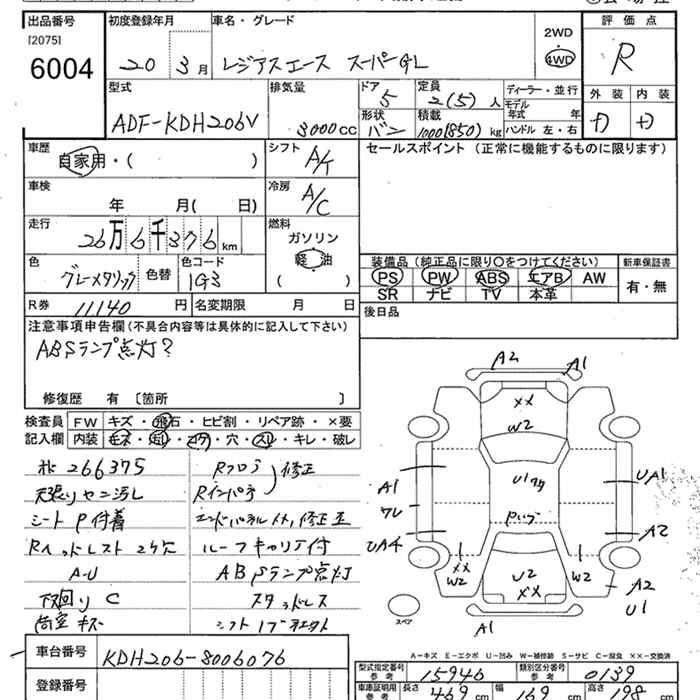 出品番号 初度登録年月 車名・グレード 評価点
[2075]
6004
20 3月 レジアスエース スーパーGL
2WD
4WD
R
型式 排気量 ドア 定員 ディーラー・並行 外装 内装
ADF-KDH206V 3000cc 5 2(5)人
モデル年式 年
形状 積載 ハンドル 左・右
バン 1000(850)kg
車歴 シフト セールスポイント (正常に機能するものに限ります)
自家用・( ) A/T
車検 冷房
年 月( 日) A/C
走行 燃料
26万6千376km ガソリン
軽油
( )
装備品 (純正品に限り○をつけてください) 新車保証書
色 色替 色コード
グレーメタリック 1G3
PS PW ABS エアB AW 有・無
SR ナビ TV 本革
R券 11140円 名変期限 月 日
後日品
注意事項申告欄(不具合内容等は具体的に記入して下さい)
ABSランプ点灯?
修復歴 有 〔箇所 〕
検査員 FW キズ・飛石・ヒビ割・リペア跡・×要
記入欄 内装 キズ・汚レ・コゲ・穴・スレ・キレ・破レ
266375
シートP付着
A-U
下回りC
荷室キズ
Rフロア 修正
Rインパネ
ルーフキャリア付
ABSランプ点灯
スタッドレス
A2 A1
××
W2
A1 U1 UA1
A2
UA4
×× W2 U2 ×× W2
A2
U1
A1
スペア
A-キズ E-エクボ U-凹み W-補修跡 S-サビ C-腐食 ××-交換済
車台番号 KDH206-8006076
型式指定番号 参考 15946 類別区分番号 参考 0139
登録番号
車庫証明用 参考 長さ 469cm 幅 169cm 高さ 198cm